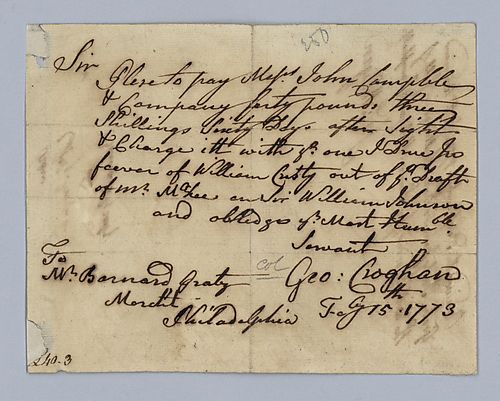 250
Sir
Plese to pay Messrs John Campble
& Company forty pounds three
Shillings Sixty Days after Sight
& Charge itt with
faever of William out of ye Draft
of Mr. McKee on Sir William Johnson
and oblidge yr. Most Humble
Servant
Col Geo: Croghan
To
Mr. Barnard Gratz
Mercht.
Philadelphia Feby 15th. 1773
£40.3